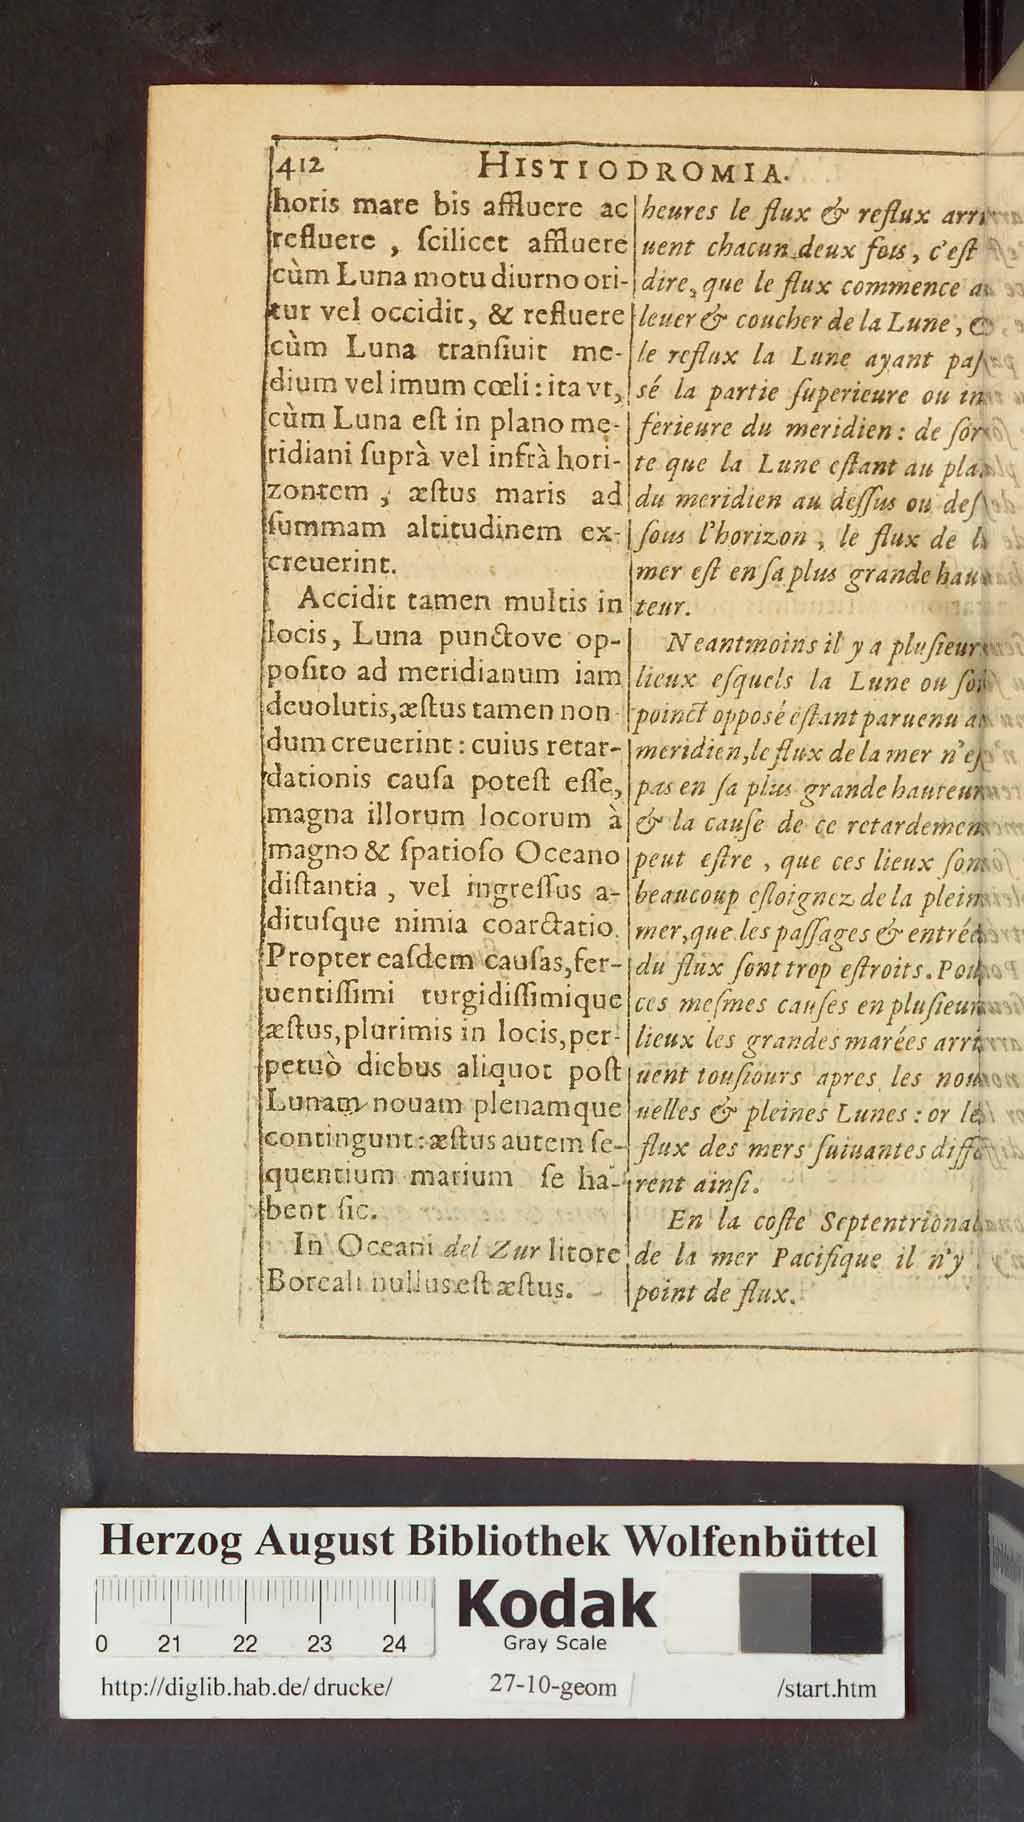 412 HISTIODROMIA.
horis mare bis affluere ac
refluere , ſcilicet affluere
cùm Luna motu diurno ori-
tur vel occidit, & refluere
cùm Luna tranſiuit me-
dium vel imum cœli : ita vt,
cùm Luna eſt in plano me-
ridiani ſuprà vel infrà hori-
zontem , æſtus maris ad
ſummam altitudinem ex-
creuerint.
Accidit tamen multis in
locis, Luna punctove op-
poſito ad meridianum iam
deuolutis, æſtus tamen non-
dum creuerint : cuius retar-
dationis cauſa poteſt eſſe,
magna illorum locorum à
magno & ſpatioſo Oceano
diſtantia , vel ingreſſus a-
dituſque nimia coarctatio.
Propter eaſdem cauſas, fer-
uentiſſimi turgidiſſimique
æſtus, plurimis in locis, per-
petuò diebus aliquot poſt
Lunam nouam plenamque
contingunt : æſtus autem ſe-
quentium marium ſe ha-
bent ſic.
In Oceani del Zur litore
Boreali nullus eſt æſtus.
heures le flux & reflux arri
uent chacun deux fois, c'eſt
dire, que le flux commence au
leuer & coucher de la Lune, &
le reflux la Lune ayant paſ
sé la partie ſuperieure ou in
ferieure du meridien : de ſor
te que la Lune eſtant au plan
du meridien au deſſus ou deſ
ſous l'horizon , le flux de la
mer eſt en ſa plus grande hau
teur.
Neantmoins il y a pluſieurs
lieux eſquels la Lune ou ſon
poinct opposé eſtant paruenu au
meridien, le flux de la mer n'eſ
pas en ſa plus grande hauteur
& la cauſe de ce retardemen
peut eſtre , que ces lieux ſont
beaucoup eſloignez de la plein
mer, que les paſſages & entrées
du flux ſont trop eſtroits. Pou
ces meſmes cauſes en pluſieurs
lieux les grandes marées arri
uent touſiours apres les nou
uelles & pleines Lunes : or le
flux des mers ſuiuantes diffe
rent ainſi.
En la coſte Septentrional
de la mer Pacifique il n'y
point de flux.
Herzog August Bibliothek Wolfenbüttel
0 21 22 23 24
Kodak
Gray Scale
http://diglib.hab.de/ drucke/ 27-10-geom /start.htm